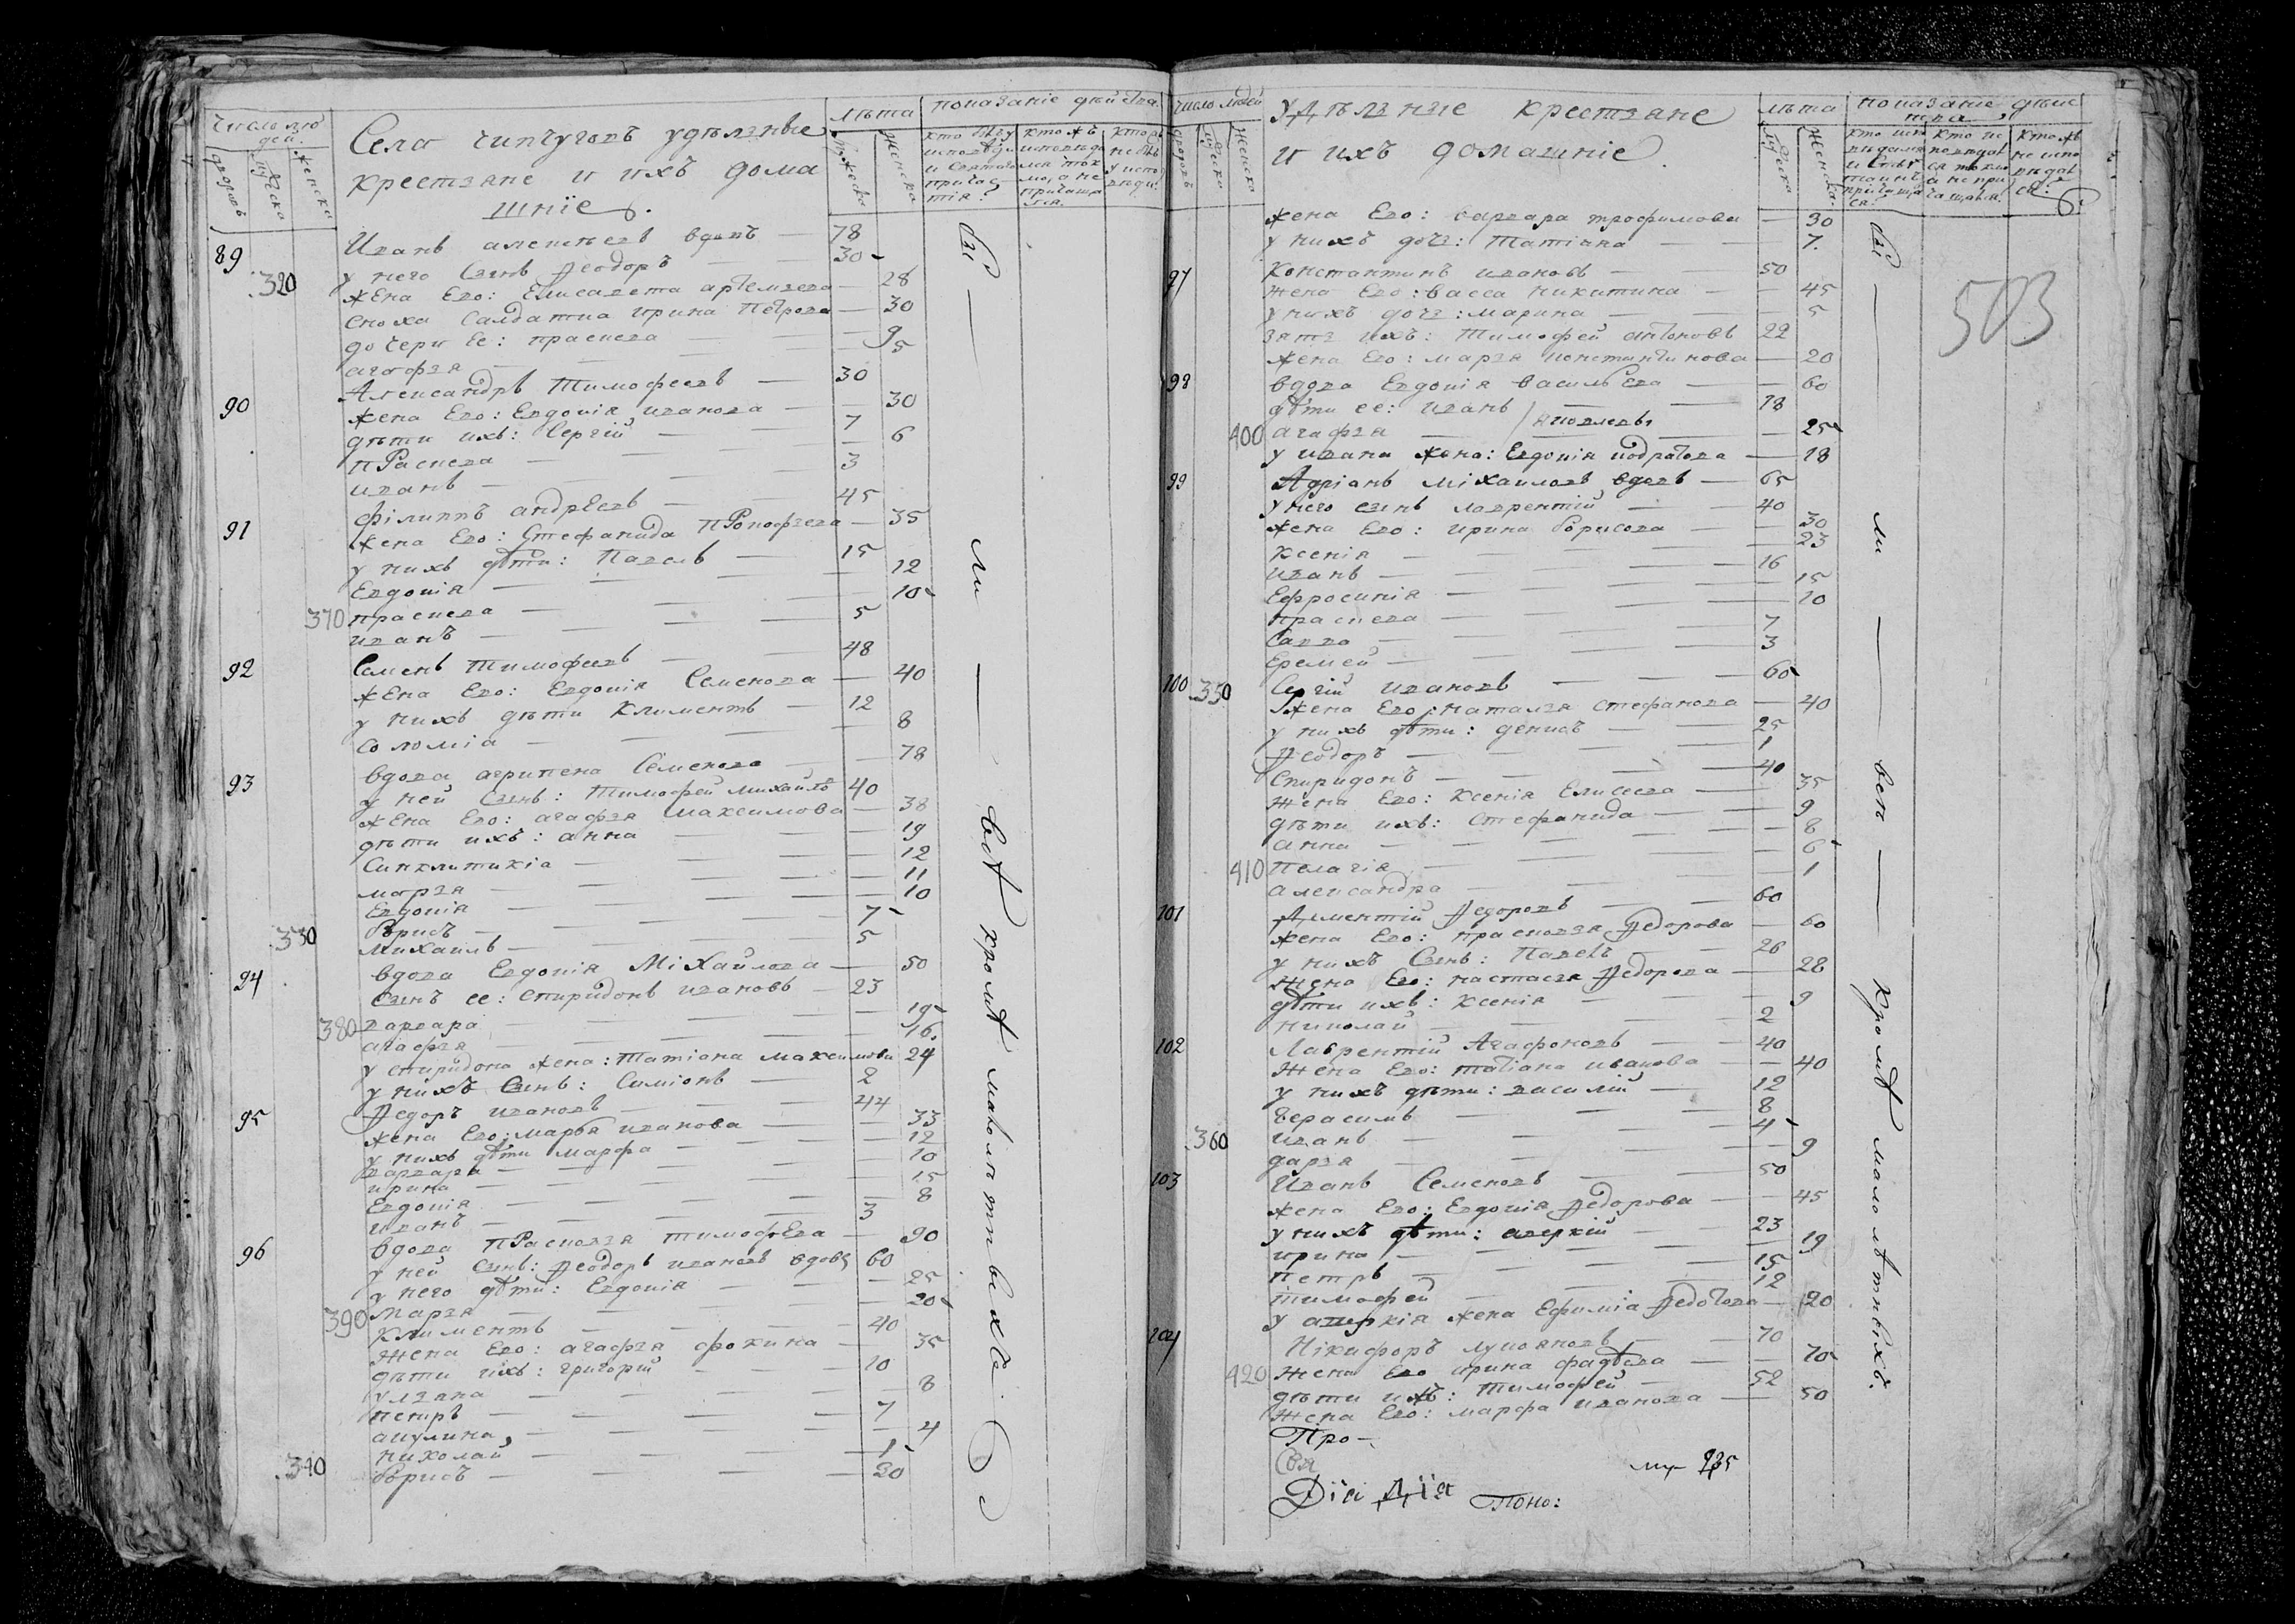 число людей.
дворовъ
мужеска
женска
Село чипчуговъ удѣлзные
крестзяне и ихъ дома
шніе
лѣта
мужеска
женска
показаніе дѣйства
89
Иванъ алексѣевъ вдовъ — 78
320 у него Сынъ Ѳеодоръ — 30
жена Его: Елисавета артемзева — 28
сноха Салдатка ирина Петрова — 30
дочери Ее: праскева — 9
агофзя — 5
90 Александръ Тимофеевъ — 30
жена Его: Евдокія иванова — 30
дѣти ихъ: Сергій — 7
пРаскева — 6
иванъ — 3
91 филиппъ андрЕевъ — 45
жена Его: Стефанида пРокофзева — 35
у нихъ дѣти: Павелъ — 15
Евдокія — 12
370 праскева — 10
иванъ — 5
92 Семенъ Тимофеевъ — 48
жена Его: Евдокія Семенова — 40
у нихъ дѣти Климентъ — 12
соломіа — 8
93 вдова агрипена Семенова — 78
у ней Сынъ: Тимофей михайлъ 40
жена Его: агафзя максимова — 38
дѣти ихъ: анна — 19
Синклитикіа — 12
марзя — 11
Евдокія — 10
330 Борисъ — 7
михаилъ — 5
94 вдова Евдокія Міхайлова — 50
сынъ ее: спиридонъ ивановъ — 23
380 варвара — 19
агафзя — 16.
у спиридона жена: Татіана максимова 24
у нихъ Сынъ: Симіонъ — 2
95 Ѳедоръ ивановъ — 44
жена Его: марья иванова — 33
у нихъ дѣти марфа — 12
варвара — 10
ирина — 15
Евдокія — 8
иванъ — 3
96 вдова пРасковзя тимофЕва — 90
у ней Сынъ: Ѳеодоръ ивановъ вдовъ 60
у него дѣти: Евдокія — 25
390 Марзя — 20
климентъ — 40
жена Его: агафзя фокина — 35
дѣти ихъ: григорій — 10
улзяна — 8
петръ — 7
акулина, — 4
николай — 1
340 Борисъ — 20
бы — ли — всѣ кромѣ малолѣтныхъ.
число людей
дворовъ
мужеска
женска
Удѣлзные крестзяне
и ихъ домашніе
лѣта
мужеска
женска.
показаніе дѣйс
тва
503
жена Его: варвара трофимова — 30
у нихъ дочз: Татіана — 7.
97 Константинъ ивановъ — 50
жена Его: васса никитина — 45
у нихъ дочз: марина — 5
зятз ихъ: Тимофей антоновъ 22
жена Его: марзя константинова — 20
98 вдова Евдокія васильева — 60
дѣти ее: иванъ — 18
400 агафзя — 25
у ивана жена: Евдокія кодратова — 18
99 Адріанъ міхаиловъ вдовъ — 65
у него сынъ лаврентій — 40
жена Его: ирина борисова — 30
ксенія — 23
иванъ — 16
Ефросинія — 15
праскева — 10
Савва — 7
Еремей — 3
100 350 Сергій ивановъ — 60
жена Его: наталзя стефанова — 40
у нихъ дѣти: денисъ — 25
Ѳеодоръ — 1
Спиридонъ — 40
жена Его: Ксенія Елисеева — 35
дѣти ихъ: Стефанида — 9
анна — 8
410 пелагія — 6
александра — 1
101 Дментій Ѳедоровъ — 60
жена Его: прасковзя Ѳедорова — 60
у нихъ Сынъ: Павелъ — 26
жена Его: настасзя Ѳедорова — 28
дѣти ихъ: Ксенія — 9
николай — 2
102 Лаврентій Агафоновъ — 40
жена Его: татіана иванова — 40
у нихъ дѣти: василій — 12
герасимъ — 8
360 иванъ — 4
дарзя — 9
103 Иванъ Семеновъ — 50
жена Его: Евдокія Ѳедорова — 45
у нихъ дѣти: аверкій — 23
ирина — 19
петръ — 15
тимофей — 12
у аверкія жена Ефиміа Ѳедотова — 20
104 Нікифоръ лукояновъ — 70
420 жена Его ирина фадѣева — 70
дѣти ихъ: Тимофей — 52
жена Его: марфа иванова — 50
Про-
Свя
му- 235
Dїа Дїа Поно:
бы — ли — всѣ — кромѣ малолѣтныхъ.